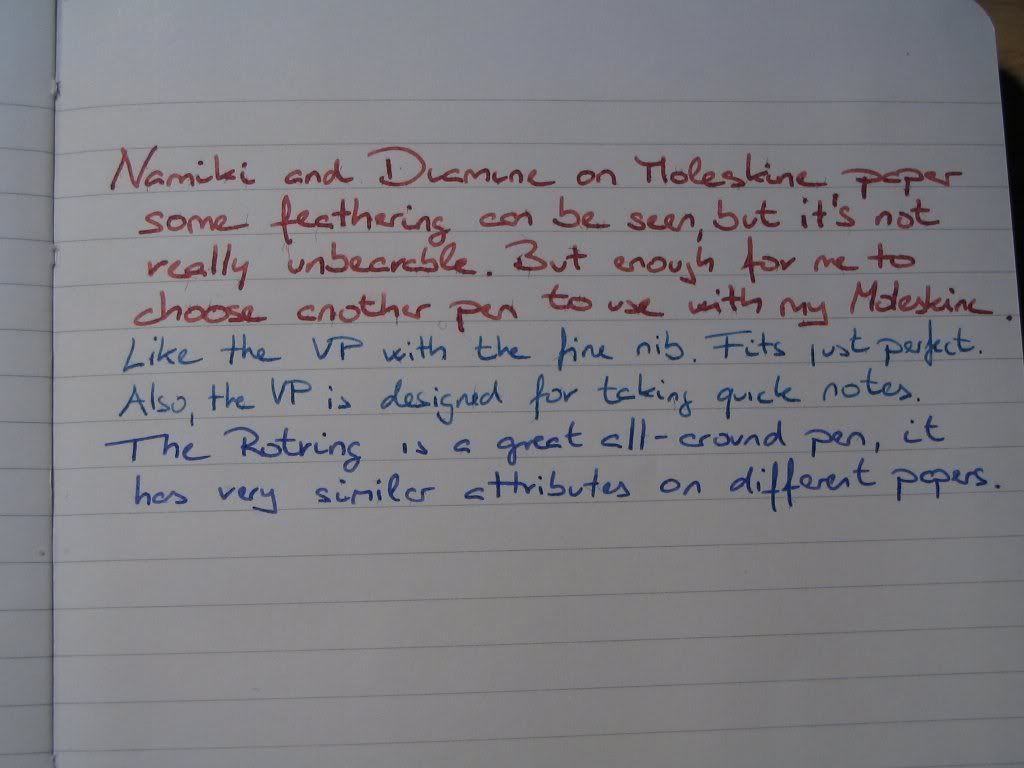 Namiki and Diamine on Moleskine paper
some feathering can be seen, but it's not
really unbearable. But enough for me to
choose another pen to use with my Moleskine.
Like the VP with the fine nib. Fits just perfect.
Also, the VP is designed for taking quick notes.
The Rotring is a great all-around pen, it
has very similar attributes on different papers.